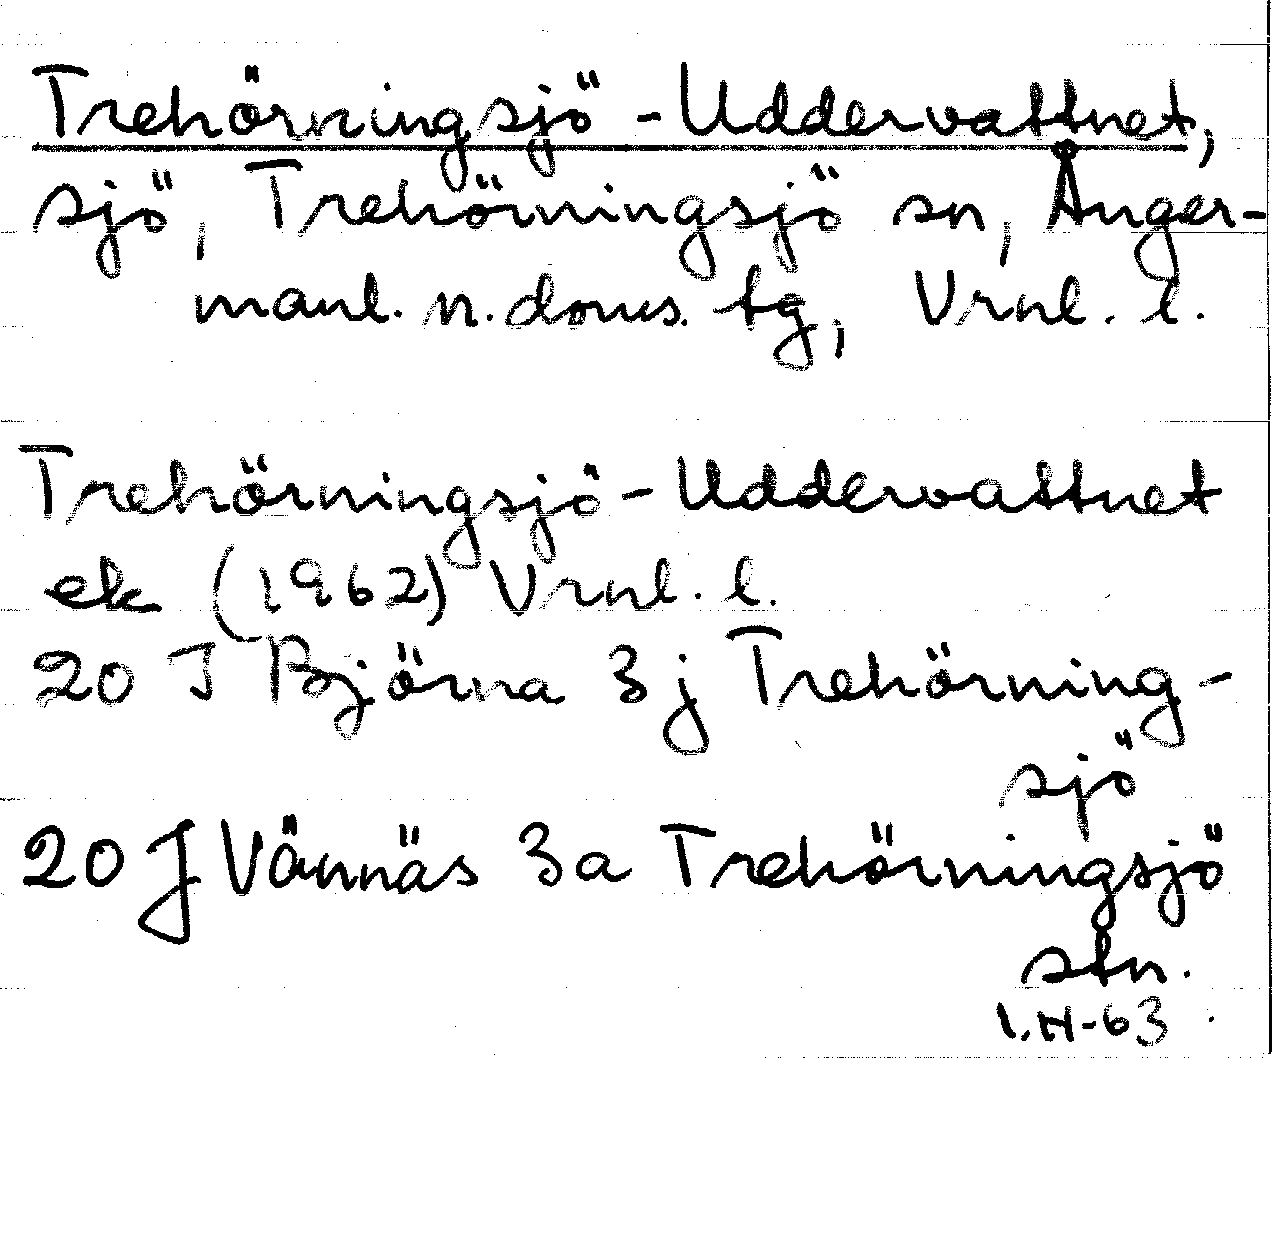 Trehörningsjö-Uddervattnet,
sjö, Trehörningsjö sn, Ånger-
manl. n. doms. tg, Vrnl. l.
Trehörningsjö-Uddervattnet
ek (1962) Vrnl. l.
20 J Björna 3j Trehörning-
sjö
20 J Vännäs 3a Trehörningsjö
stn.
I.H-63